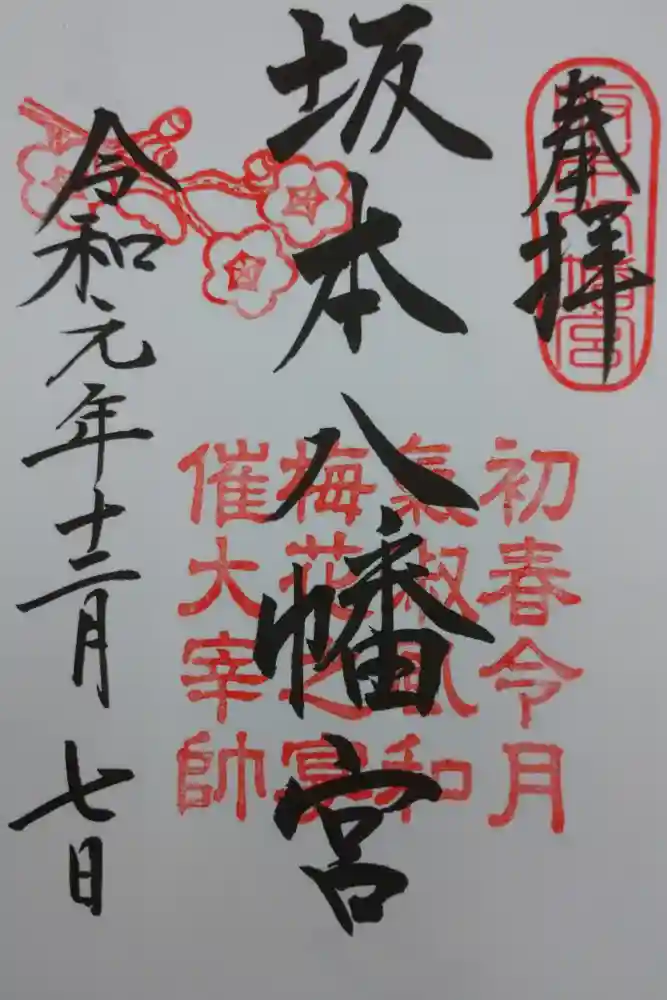 奉拝
坂本八幡宮
初春令月
氣淑風和
梅花之宴
催大宰帥
坂本八幡宮
令和元年十二月七日